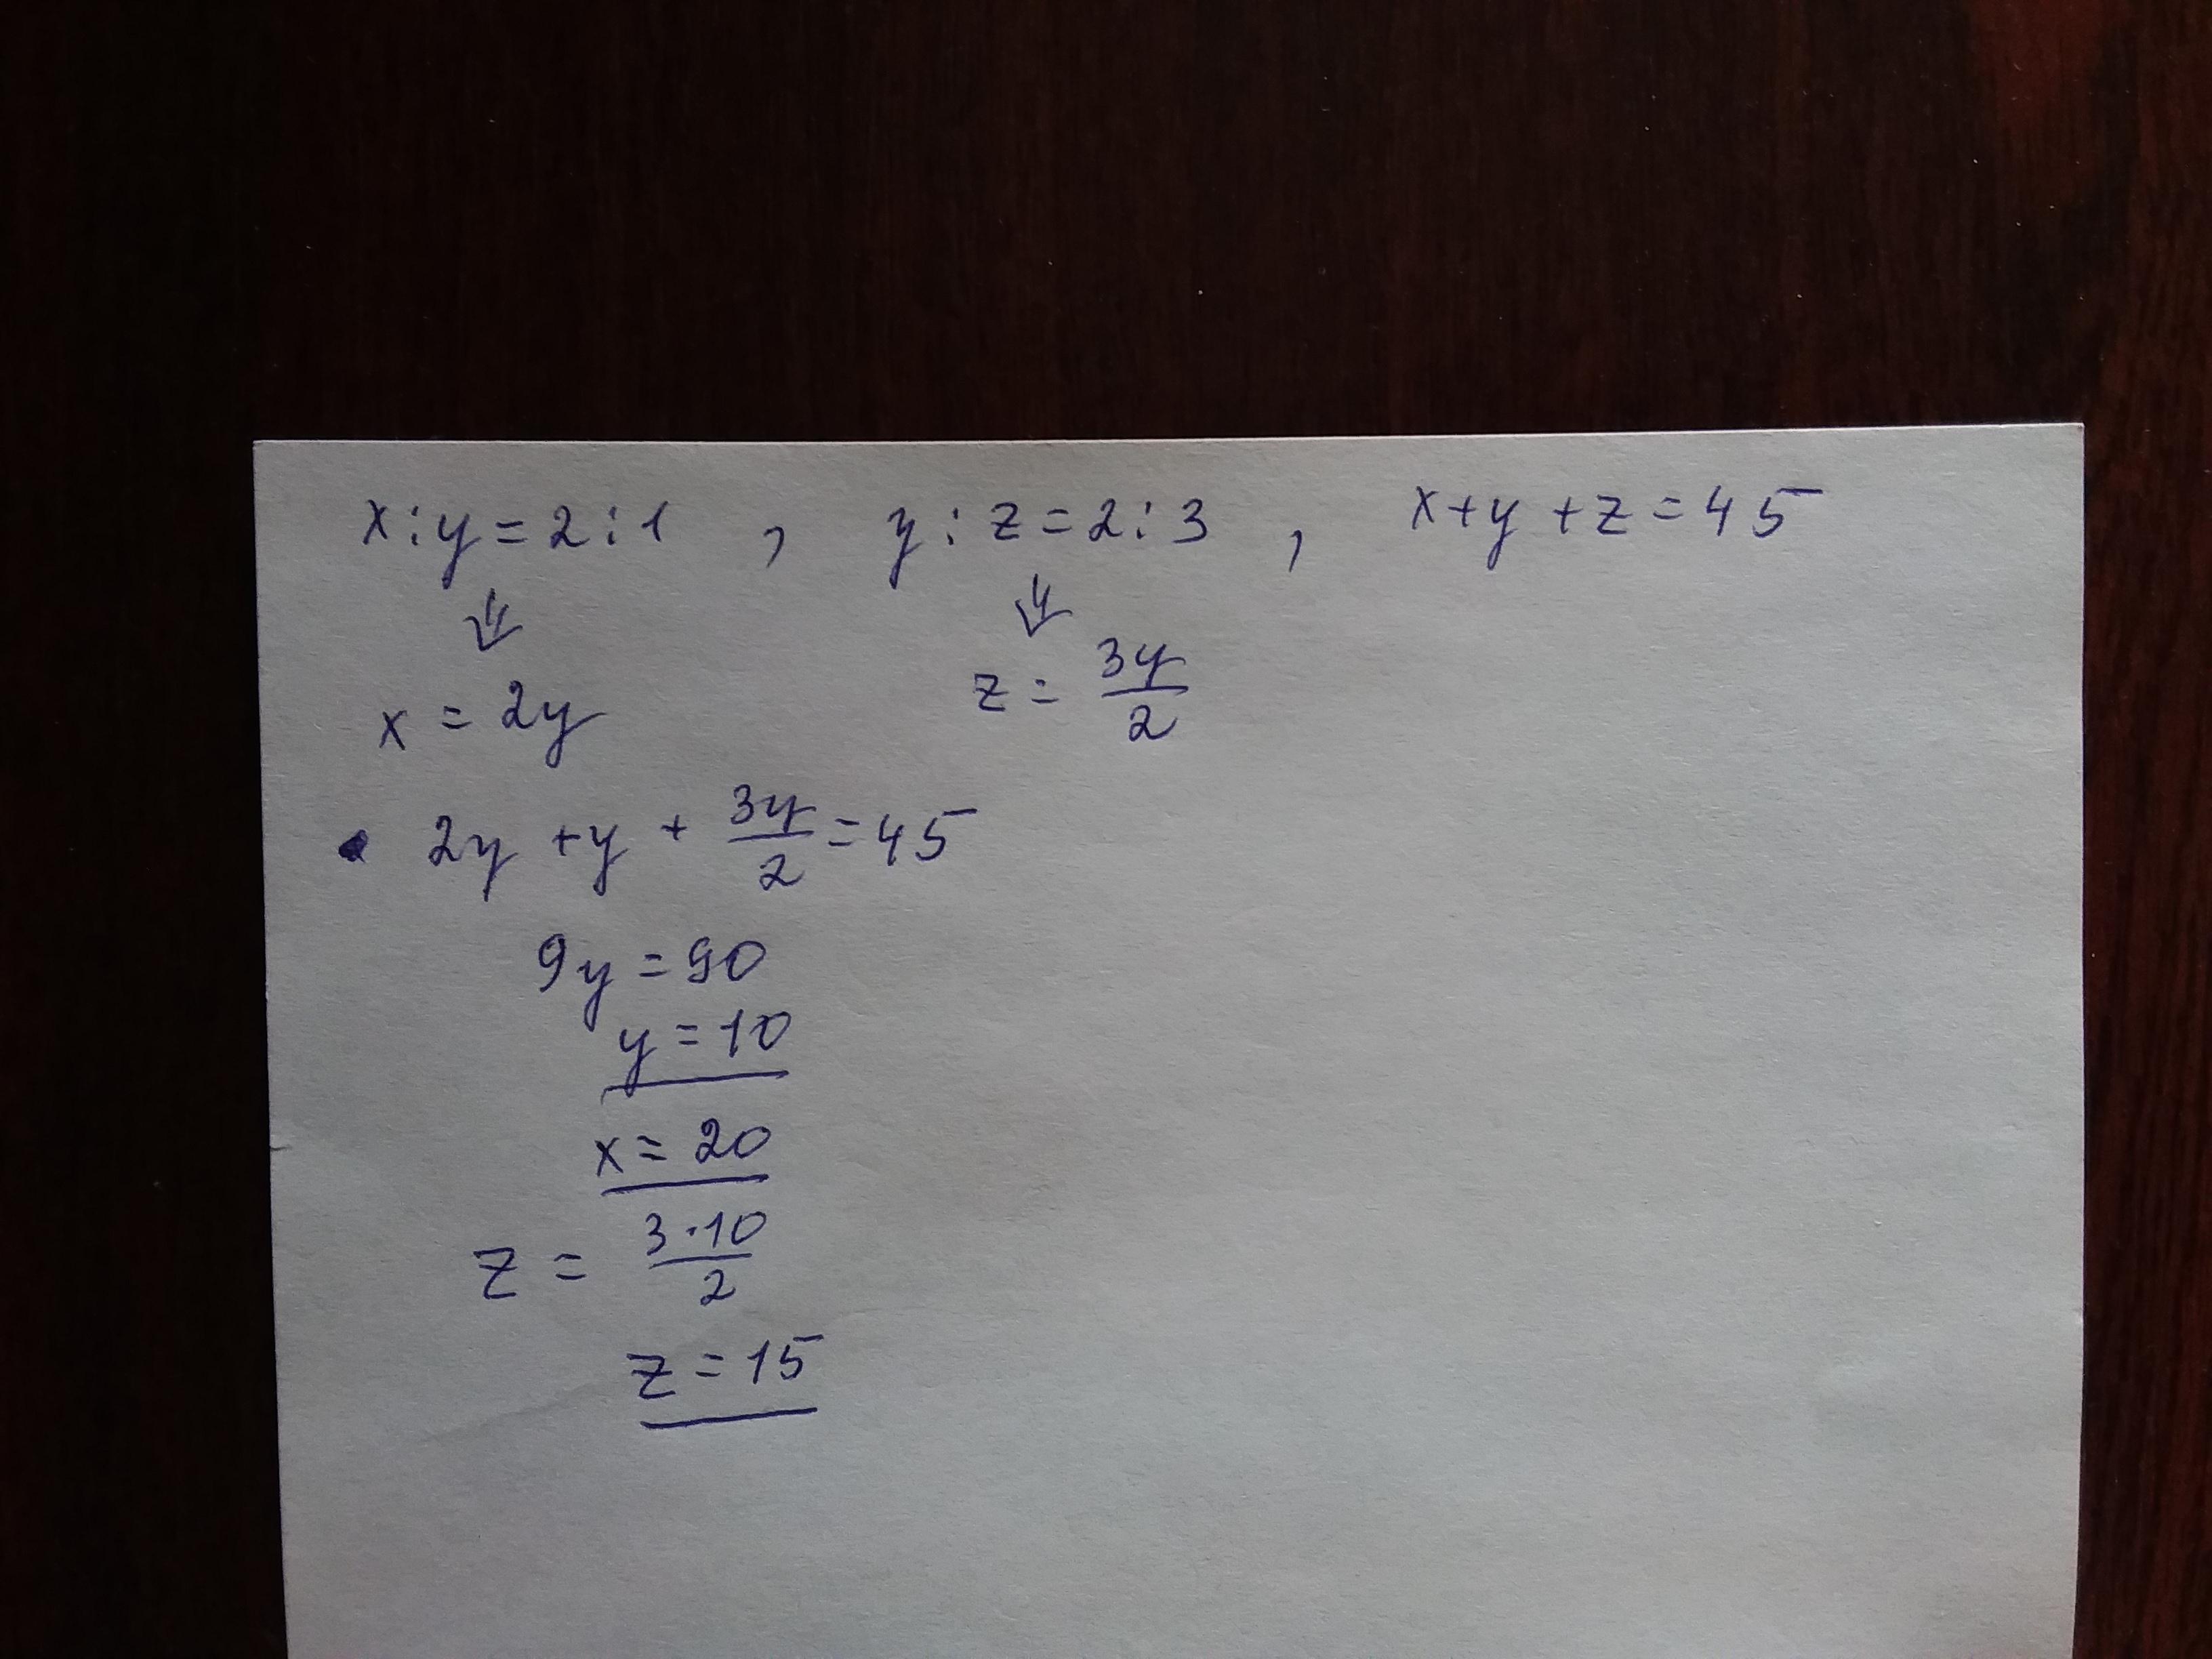 x:y=2:1 , y:z=2:3 , x+y+z=45
⇓ ⇓
x = 2y z = 3y/2
• 2y + y + 3y/2 = 45
9y = 90
y = 10
x = 20
z = 3·10/2
z = 15